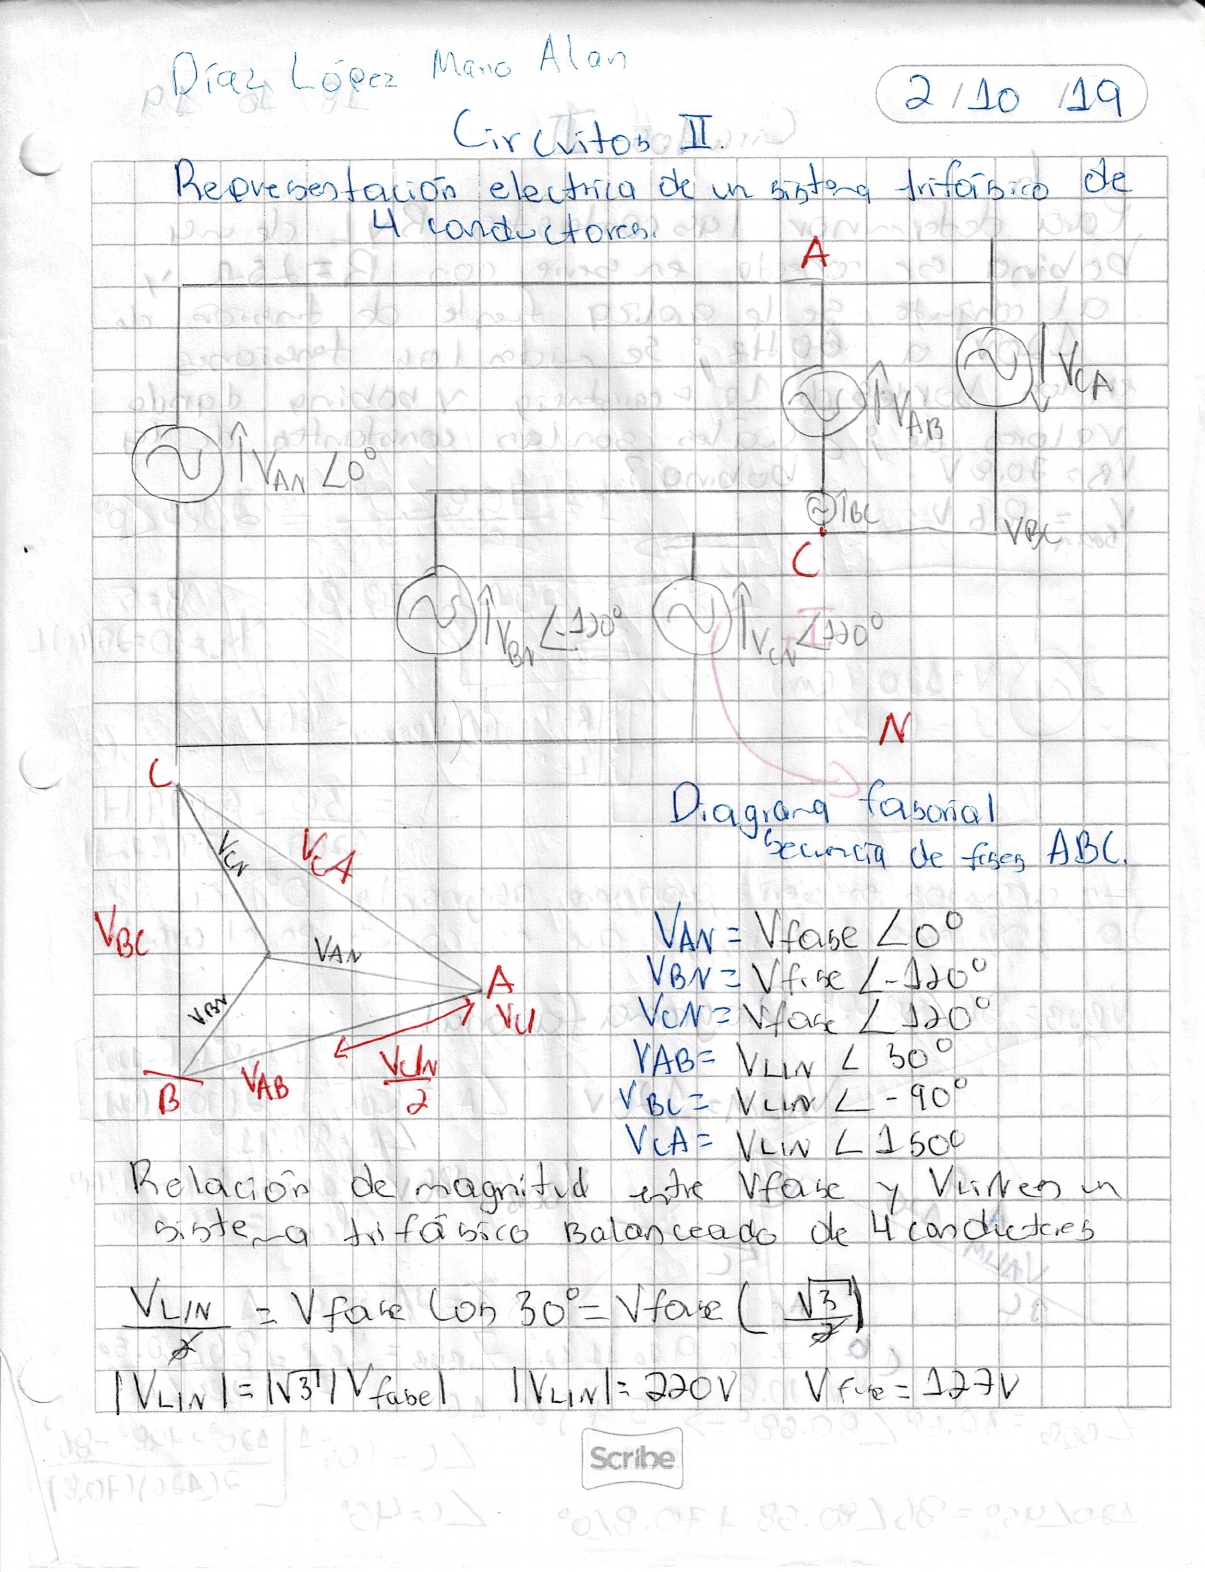 Díaz López Mario Alan
2/10/19
Circuitos II.
Representación electrica de un sistema trifásico de
4 conductores.
A
VCA
VAB
VAN ∠0°
BC
VBC
C
VBN ∠-120°
VCN ∠120°
N
C
VCN
VCA
VBC
VAN
VBN
A
B
VAB
VLIN/2
Diagrama fasorial
Secuencia de fases ABC.
VAN = Vfase ∠0°
VBN = Vfase ∠-120°
VCN = Vfase ∠120°
VAB = VLIN ∠ 30°
VBC = VLIN ∠ -90°
VCA = VLIN ∠ 150°
Relación de magnitud entre Vfase y VLIN en un
sistema trifásico Balanceado de 4 conductores
VLIN/2 = Vfase Cos 30° = Vfase (√3/2)
|VLIN| = |√3| |Vfase| |VLIN| = 220V Vfase = 127V
Scribe